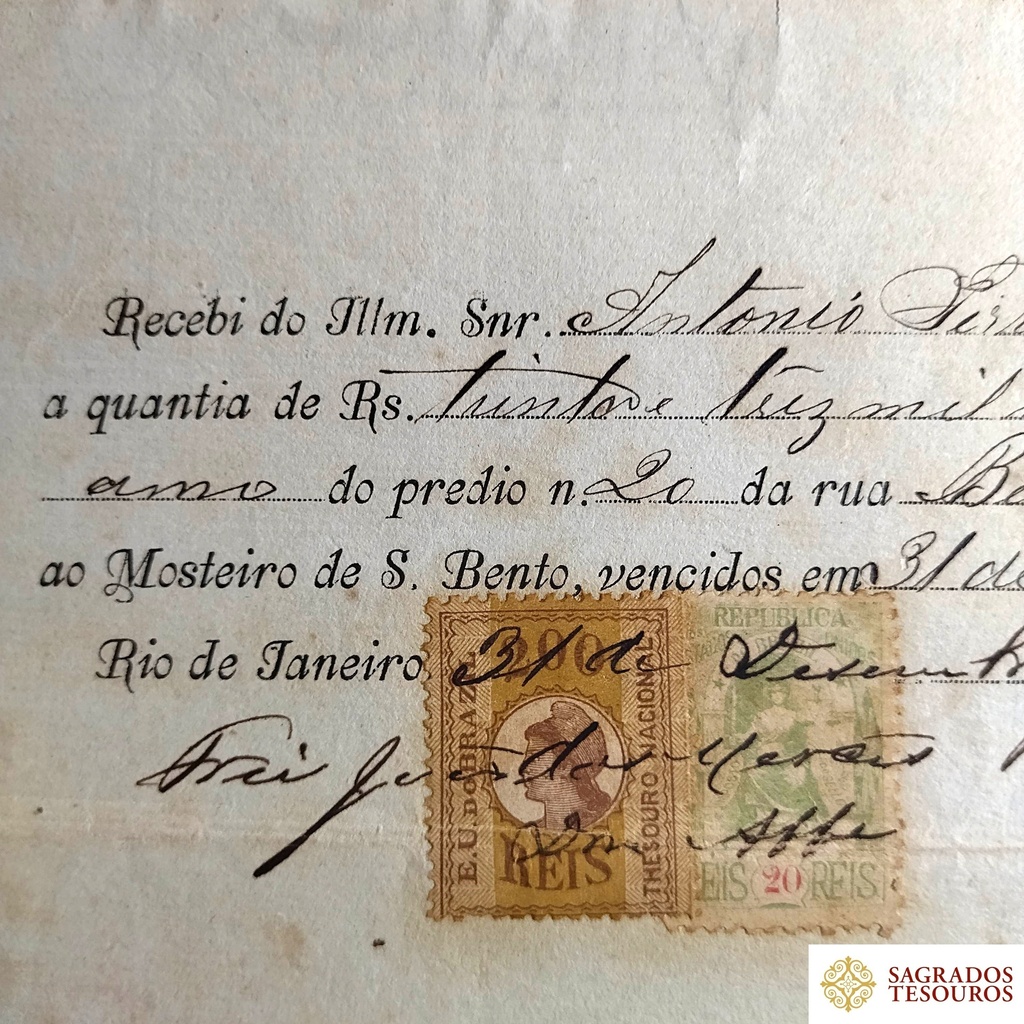 Recebi do Illm. Snr. Antonio
a quantia de Rs. trinta e trez mil
amo do predio n. 20 da rua
ao Mosteiro de S. Bento, vencidos em 31 de
Rio de Janeiro 31 de Desem
Frei João das Mercês
REPUBLICA
200
REIS
E. U. DO BRAZIL
THESOURO NACIONAL
REIS 20 REIS
SAGRADOS
TESOUROS